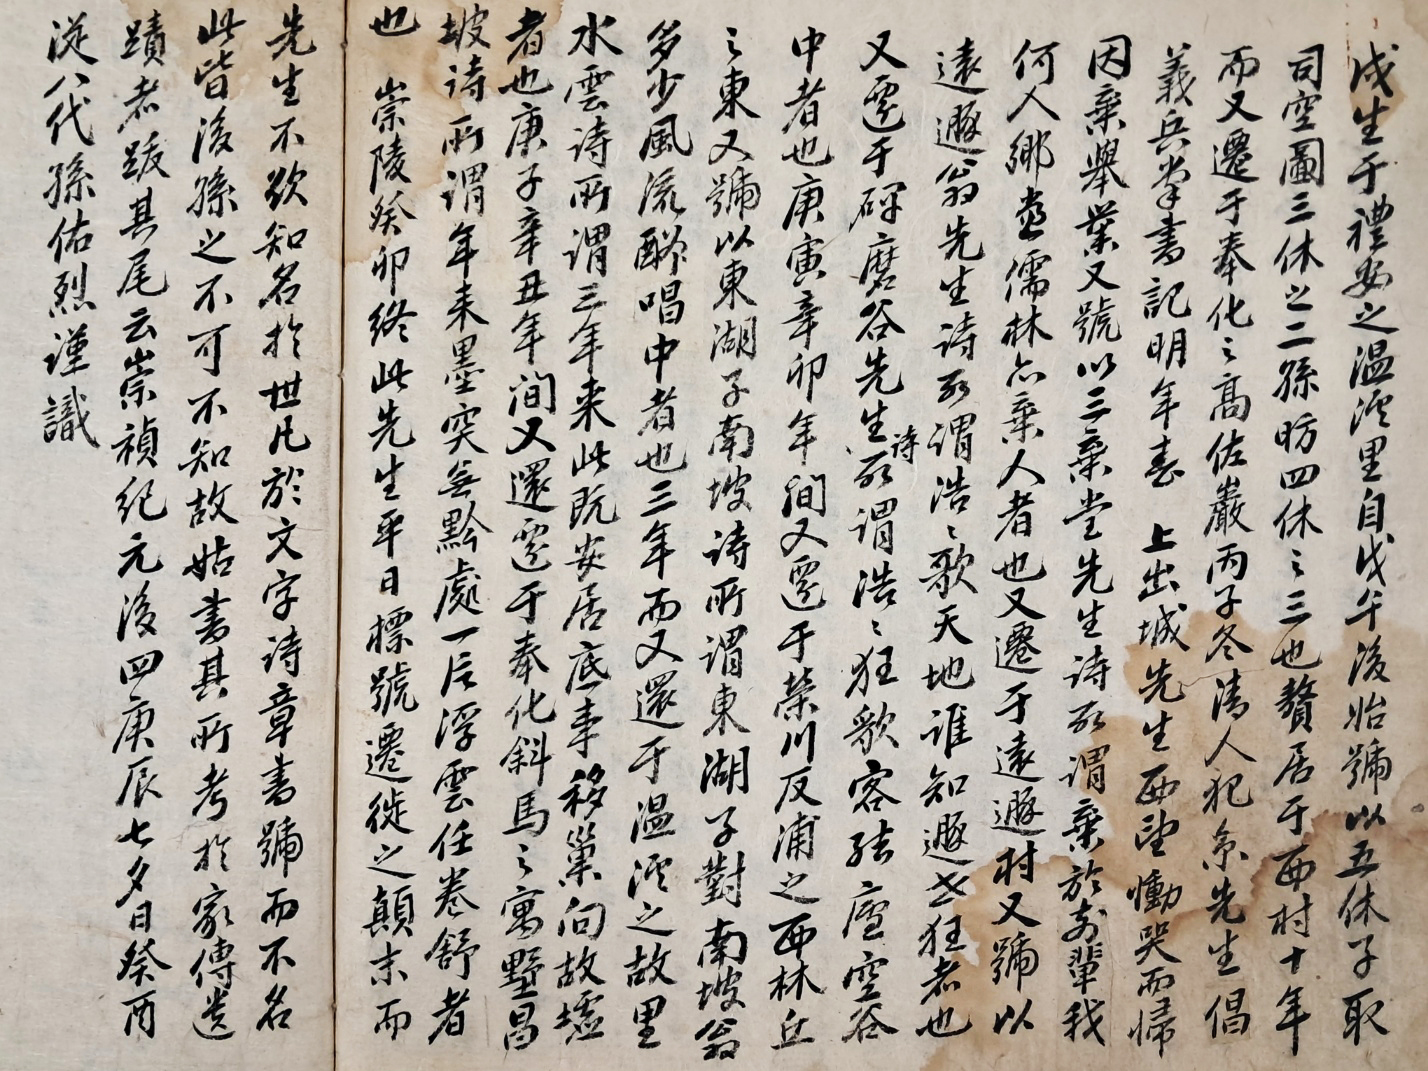 戌生于禮安之温溪里自戊午後始號以五休子取
司空圖三休之二孫昉四休之三也贅居于西村十年
而又遷于奉化之高佐巖丙子冬淸人犯京先生倡
義兵掌書記明年春 上出城先生西望慟哭而歸
因棄擧業又號以三棄堂先生詩所謂棄於前輩我
何人鄕盡儒林亦棄人者也又遷于遠遯村又號以
遠遯翁先生詩所謂浩〻歌天地誰知遯世狂者也
又還于磨谷先生詩所謂浩〻狂歌客 廬空谷
中者也庚寅辛卯年間又還于榮川反浦之西林丘
之東又號以東湖子南坡詩所謂東湖子對南坡翁
多少風流酬唱中者也三年而又還于温溪之故里
水雲詩所謂三年来此既安居底事移巢向故墟
者也庚子辛丑年間又還于奉化斜馬之寓墅昌
坡詩所謂年来墨突無黔處一片浮雲任卷舒者
也 崇陵癸卯終此先生平日標號遷徙之顚末而
先生不欲知名於世凡於文字詩章書號而不名
此皆後孫之不可不知故姑書其所考於家傳遺
蹟者跋其尾云崇禎紀元後四庚辰七夕日癸酉
從八代孫佑烈謹識